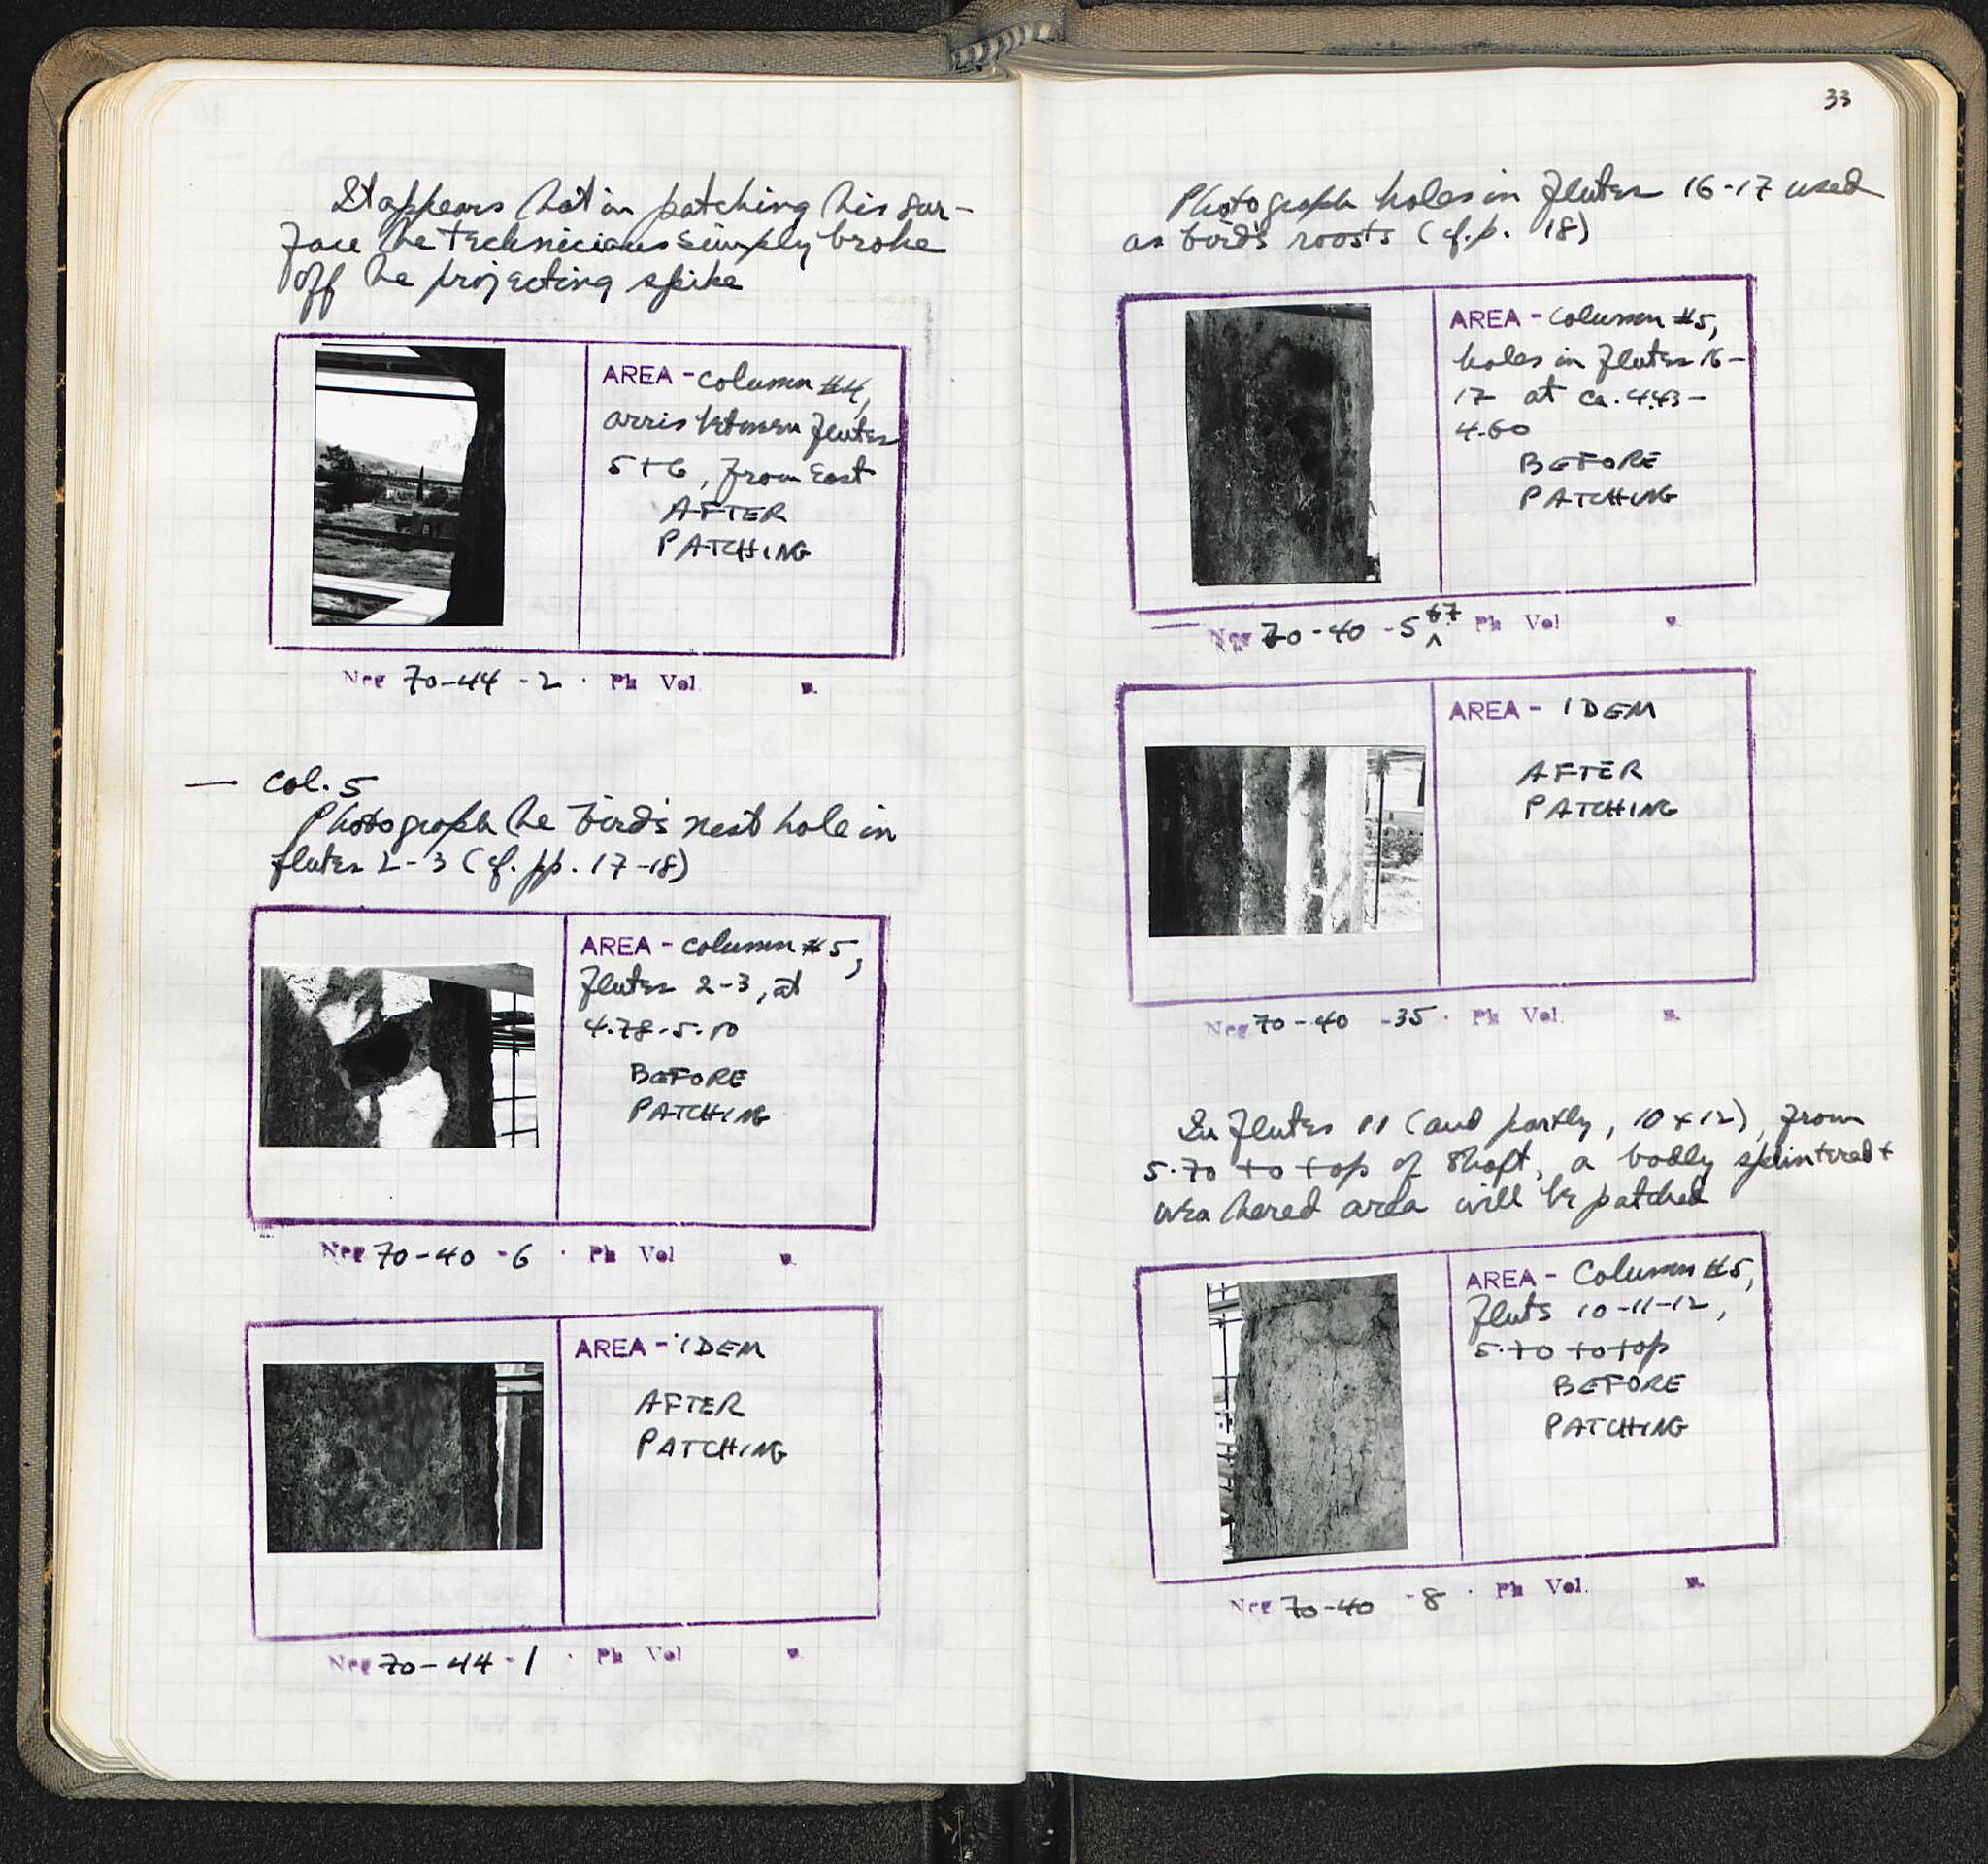 It appears that in patching this sur-
face the technicians simply broke
off the projecting spike
AREA - Column #4,
arris between flutes
5+6, from East
AFTER
PATCHING
Neg 70-44 -2 . Ph Vol
— Col. 5
Photograph the bird's nest hole in
flutes 2-3 (cf. pp. 17-18)
AREA - Column #5,
flutes 2-3, at
4.78-5.10
BEFORE
PATCHING
Neg 70-40 -6 . Ph Vol
AREA - IDEM
AFTER
PATCHING
Neg 70-44 -1 . Ph Vol
33
Photograph holes in flutes 16-17 used
as bird's roosts (cf. p. 18)
AREA - Column #5,
holes in flutes 16-
17 at ca. 4.43-
4.60
BEFORE
PATCHING
Neg 70-40 -5 +7 Ph Vol
AREA - IDEM
AFTER
PATCHING
Neg 70-40 -35 . Ph Vol.
In flutes 11 (and partly, 10 + 12), from
5.70 to top of shaft, a badly splintered +
weathered area will be patched
AREA - Column #5,
fluts 10-11-12,
5.70 to top
BEFORE
PATCHING
Neg 70-40 -8 . Ph Vol.